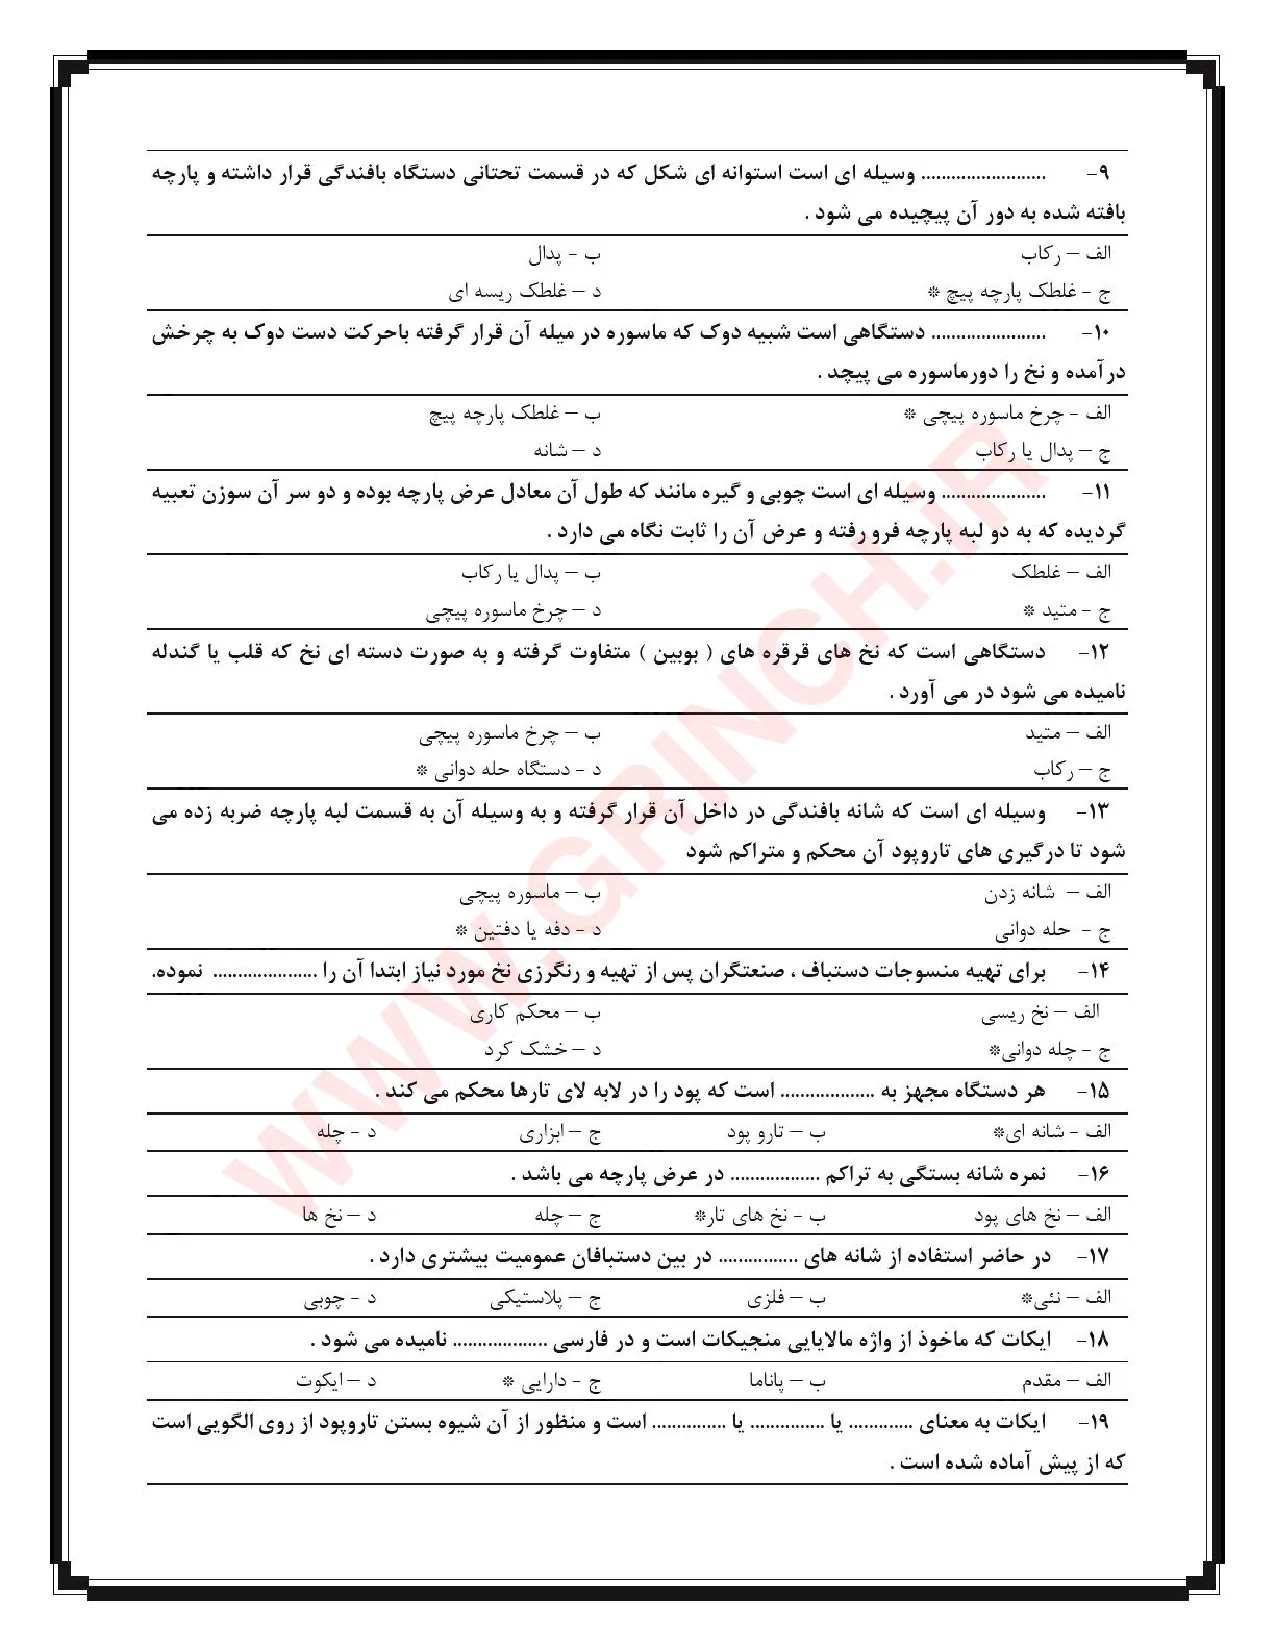 ۹- ......................... وسیله ای است استوانه ای شکل که در قسمت تحتانی دستگاه بافندگی قرار داشته و پارچه
بافته شده به دور آن پیچیده می شود .
الف – رکاب ب - پدال
ج - غلطک پارچه پیچ * د – غلطک ریسه ای
۱۰- ....................... دستگاهی است شبیه دوک که ماسوره در میله آن قرار گرفته باحرکت دست دوک به چرخش
درآمده و نخ را دورماسوره می پیچد .
الف - چرخ ماسوره پیچی * ب – غلطک پارچه پیچ
ج – پدال یا رکاب د – شانه
۱۱- ..................... وسیله ای است چوبی و گیره مانند که طول آن معادل عرض پارچه بوده و دو سر آن سوزن تعبیه
گردیده که به دو لبه پارچه فرو رفته و عرض آن را ثابت نگاه می دارد .
الف – غلطک ب – پدال یا رکاب
ج - متید * د – چرخ ماسوره پیچی
۱۲- دستگاهی است که نخ های قرقره های ( بوبین ) متفاوت گرفته و به صورت دسته ای نخ که قلب یا گندله
نامیده می شود در می آورد .
الف – متید ب – چرخ ماسوره پیچی
ج – رکاب د - دستگاه حله دوانی *
۱۳- وسیله ای است که شانه بافندگی در داخل آن قرار گرفته و به وسیله آن به قسمت لبه پارچه ضربه زده می
شود تا درگیری های تاروپود آن محکم و متراکم شود
الف – شانه زدن ب – ماسوره پیچی
ج - حله دوانی د - دفه یا دفتین *
۱۴- برای تهیه منسوجات دستباف ، صنعتگران پس از تهیه و رنگرزی نخ مورد نیاز ابتدا آن را ..................... نموده.
الف – نخ ریسی ب – محکم کاری
ج - چله دوانی* د – خشک کرد
۱۵- هر دستگاه مجهز به ................... است که پود را در لابه لای تارها محکم می کند .
الف - شانه ای* ب – تارو پود ج – ابزاری د - چله
۱۶- نمره شانه بستگی به تراکم .................. در عرض پارچه می باشد .
الف – نخ های پود ب - نخ های تار* ج – چله د – نخ ها
۱۷- در حاضر استفاده از شانه های ................ در بین دستبافان عمومیت بیشتری دارد .
الف – نئی* ب – فلزی ج – پلاستیکی د - چوبی
۱۸- ایکات که ماخوذ از واژه مالایایی منجیکات است و در فارسی ................... نامیده می شود .
الف – مقدم ب – پاناما ج - دارایی * د – ایکوت
۱۹- ایکات به معنای ............. یا ............... یا ............... است و منظور از آن شیوه بستن تاروپود از روی الگویی است
که از پیش آماده شده است .
WWW.GRINCH.IR